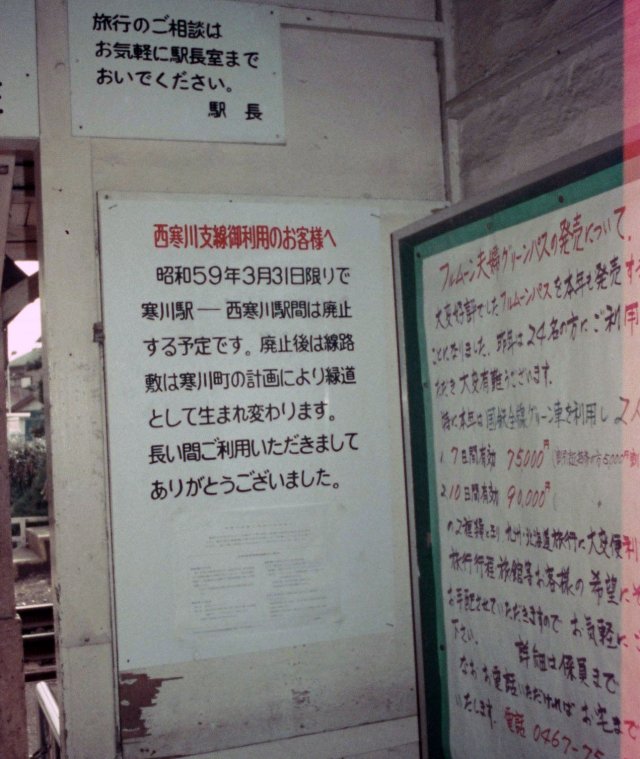 旅行のご相談は
お気軽に駅長室まで
おいでください。
駅長
西寒川支線御利用のお客様へ
昭和59年3月31日限りで
寒川駅――西寒川駅間は廃止
する予定です。廃止後は線路
敷は寒川町の計画により緑道
として生まれ変わります。
長い間ご利用いただきまして
ありがとうございました。
フルムーン夫婦グリーンパスの発売について、
大変好評でしたフルムーンパスを本年も発売する
ことになりました。昨年は24名の方にご利用
ただき大変有難うございます。
特に本年は国鉄全線グリーン車を利用し2人
1. 7日間有効 75,000円
2. 10日間有効 90,000円
の2種類に
九州・北海道旅行に大変便利
旅行行程旅館等お客様の希望に
お手配させていただきますので お気軽にご
下さい。 詳細は係員まで
なお お電話いただければ お宅まで
いたします。電話 0467-75